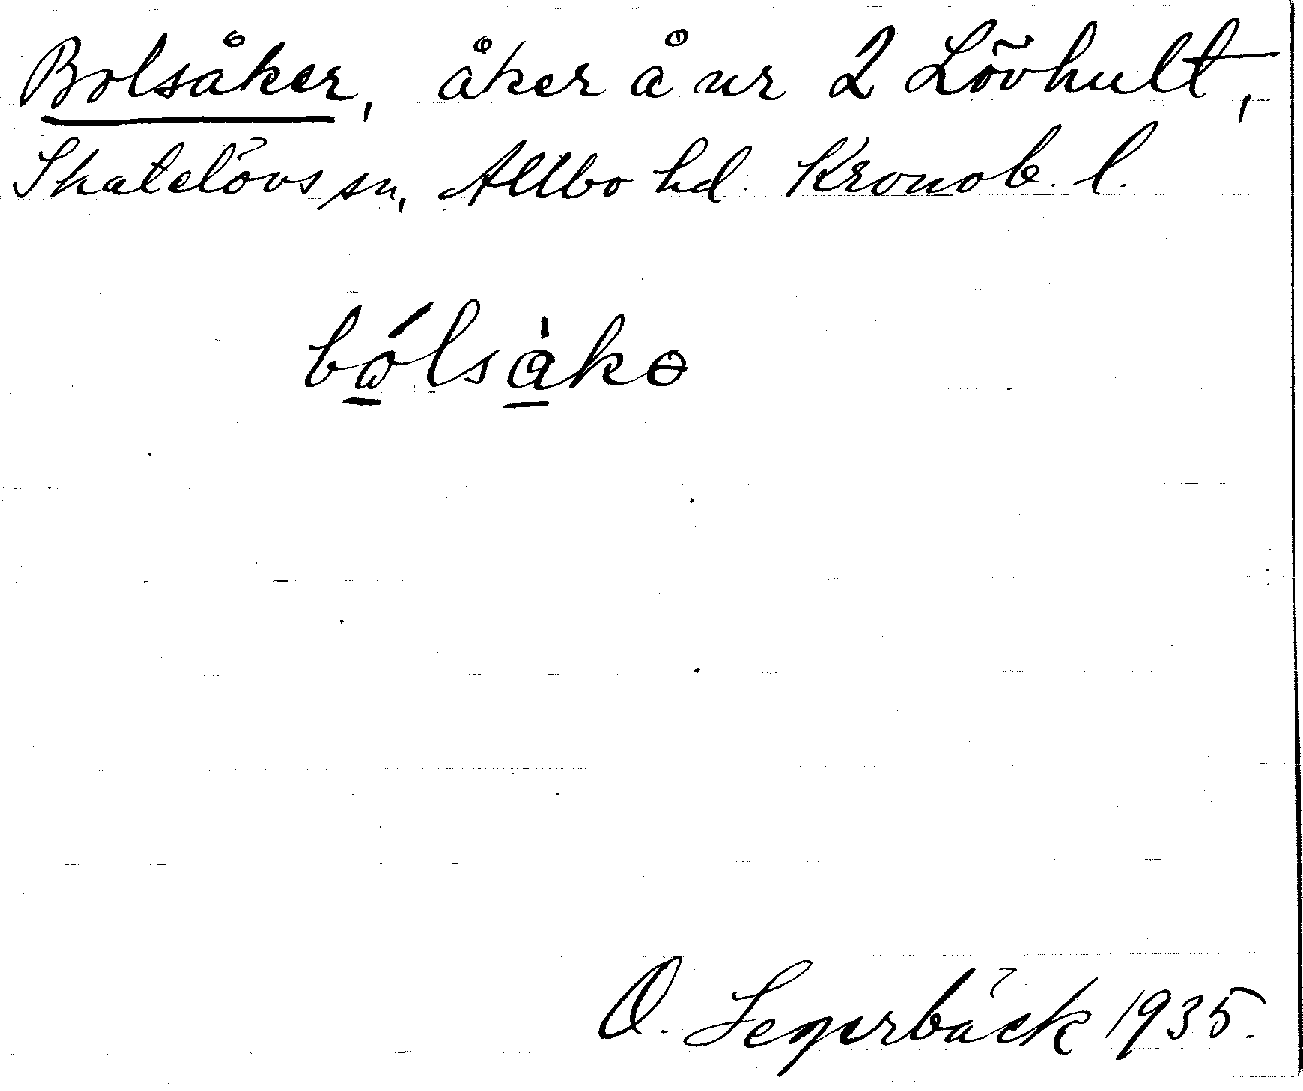 Bolsåker, åker å nr 2 Lövhult,
Skatelövs sn, Allbo hd. Kronob. l.
bólsàkɵ
O. Segerbäck 1935.